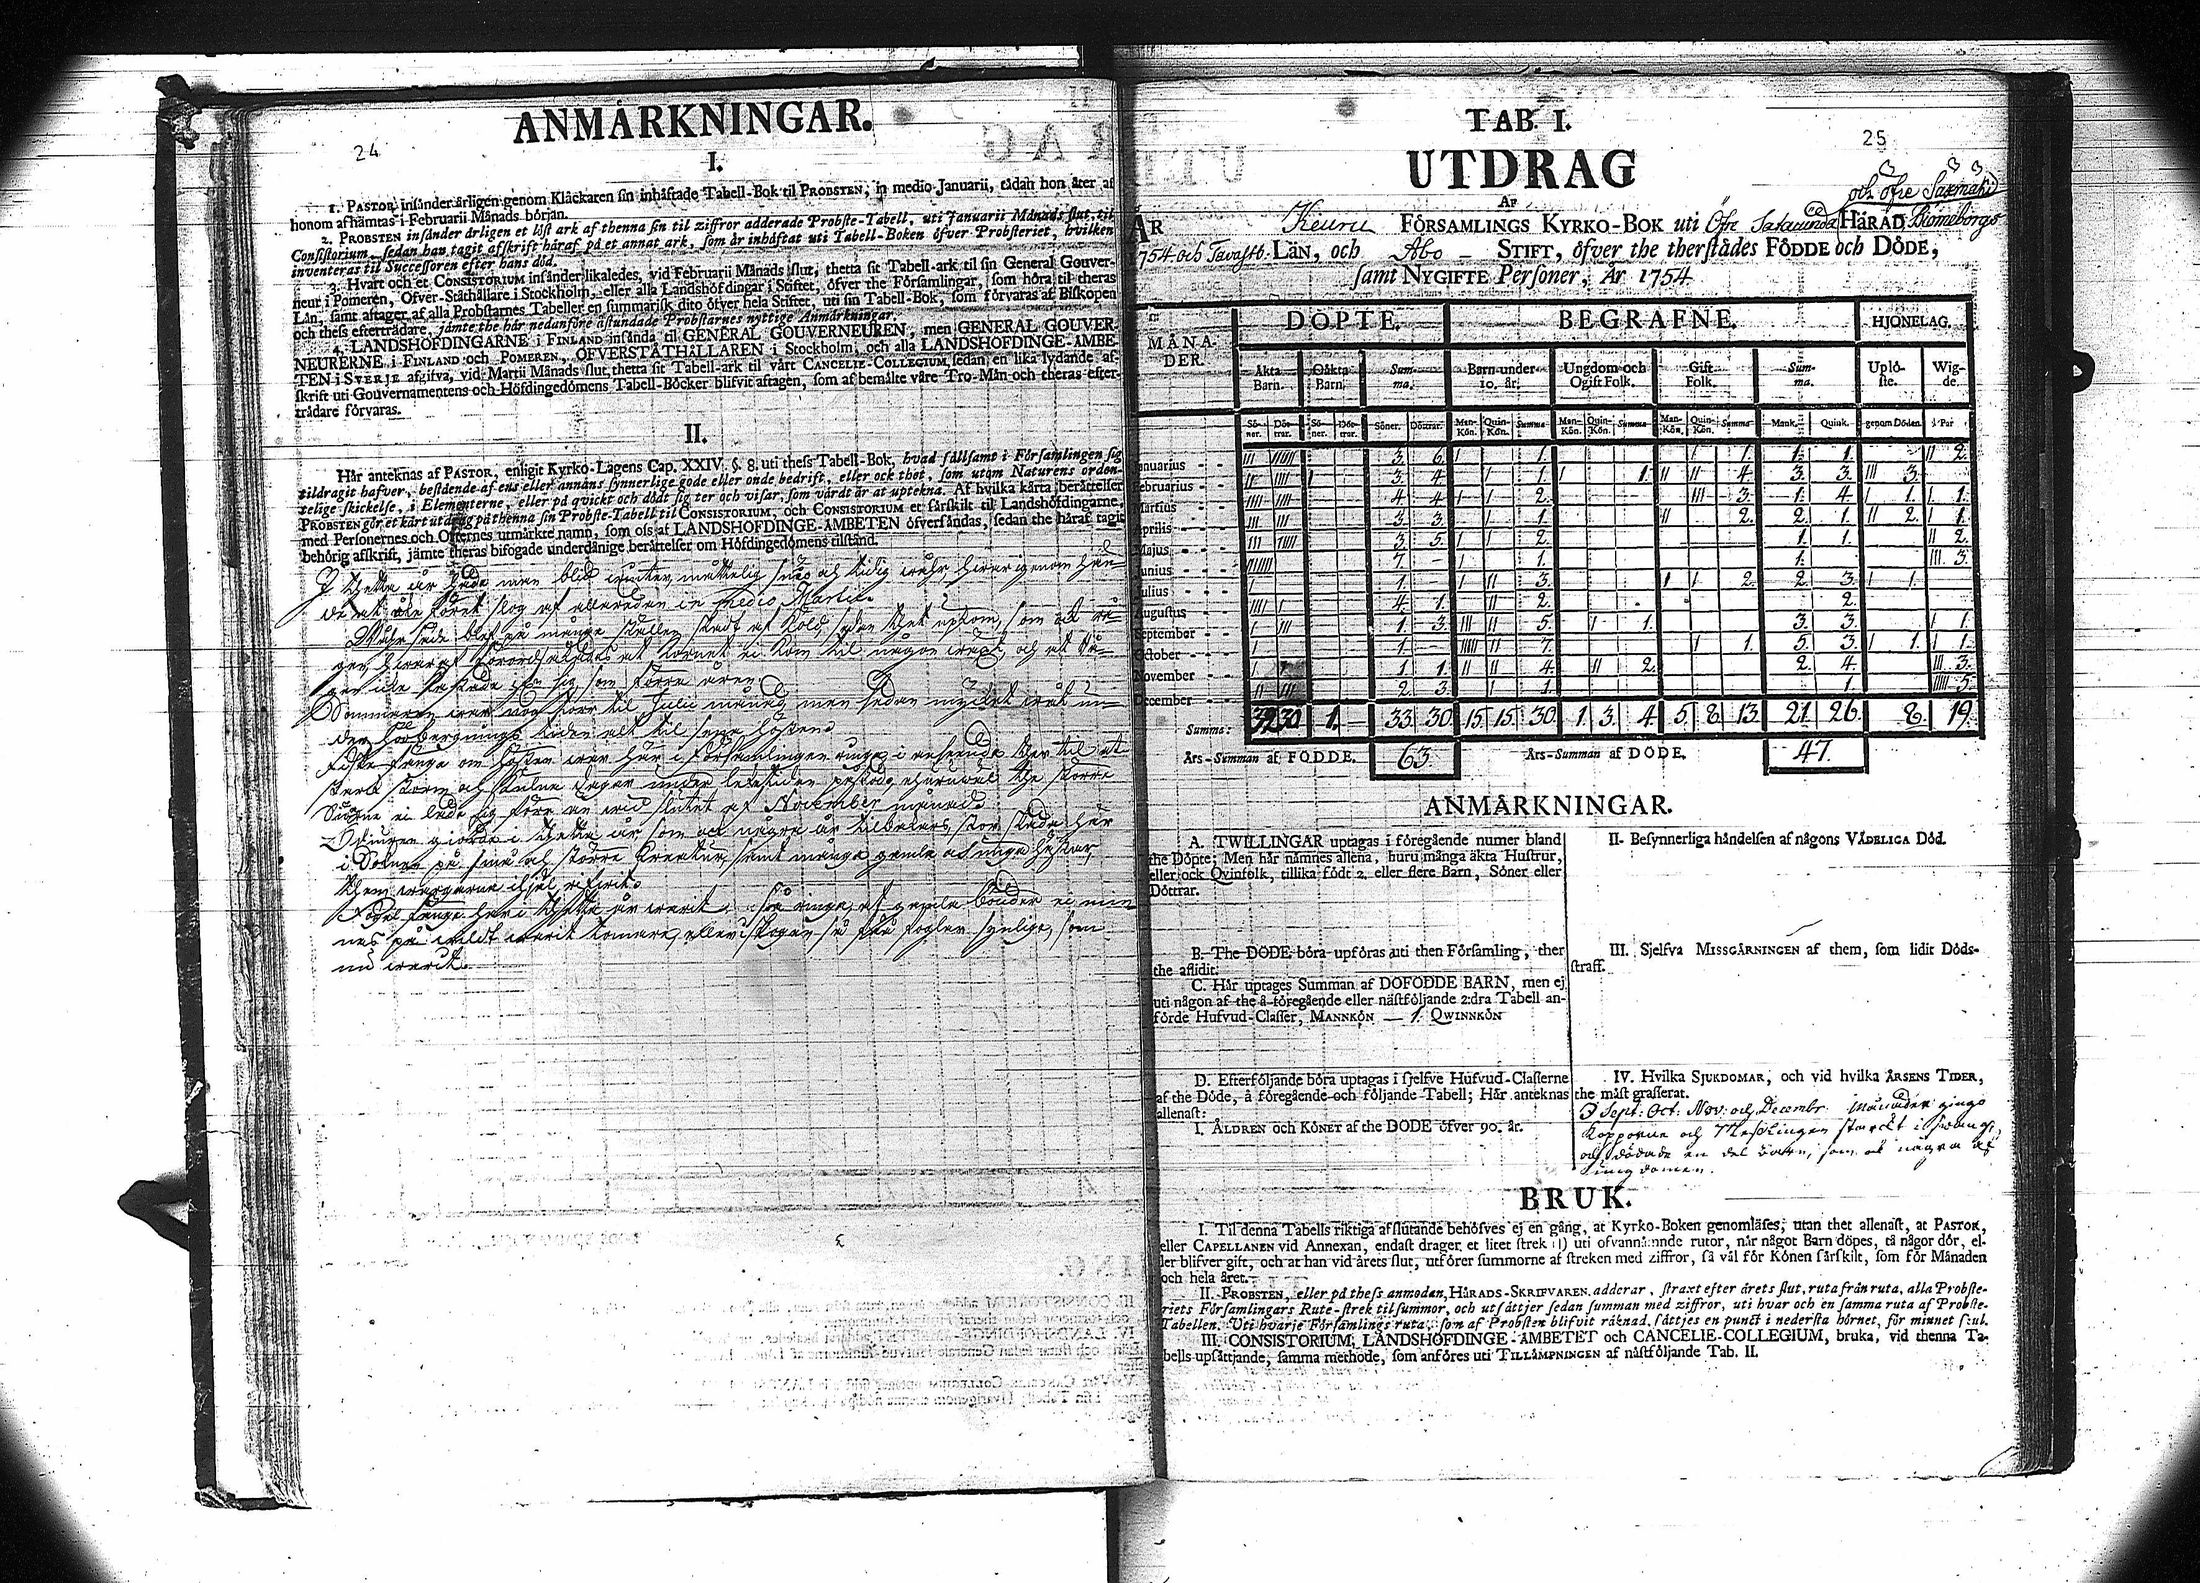 24
ANMÄRKNINGAR.
I.
1. PASTOR insänder årligen genom Klåckaren sin inhäftade Tabell-Bok til PROBSTEN, in medio Januarii, tådan hon åter af
honom afhämtas i Februarii Månads början.
2. PROBSTEN insänder årligen et löst ark af thenna sin til ziffror adderade Probste-Tabell, uti Januarii Månads slut, til
Consistorium, sedan han tagit afskrift häraf på et annat ark, som är inhäftat uti Tabell-Boken öfver Probsteriet, hvilken
inventeras til Successoren efter hans död.
3. Hvart och et CONSISTORIUM insänder likaledes, vid Februarii Månads slut, thetta sit Tabell-ark til sin General Gouver-
neur i Pomeren, Öfver-Ståthållare i Stockholm, eller alla Landshöfdingar i Stiftet, öfver the Församlingar, som höra til theras
Län, samt aftager af alla Probstarnes Tabeller en summarisk dito öfver hela Stiftet, uti sin Tabell-Bok, som förvaras af Biskopen
och thess efterträdare, jämte the här nedanföre åstundade Probstarnes nyttige Anmärkningar.
4. LANDSHÖFDINGARNE i FINLAND insända til GENERAL GOUVERNEUREN, men GENERAL GOUVER-
NEURERNE i FINLAND och POMEREN, ÖFVERSTÅTHÅLLAREN i Stockholm, och alla LANDSHÖFDINGE-ÄMBE-
TEN i SVERJE afgifva, vid Martii Månads slut, thetta sit Tabell-ark til vårt CANCELIE-COLLEGIUM, sedan en lika lydande af-
skrift uti Gouvernamentens och Höfdingedömens Tabell-Böcker blifvit aftagen, som af bemälte våre Tro-Män och theras efter-
trädare förvaras.
II.
Här anteknas af PASTOR, enligit Kyrko-Lagens Cap. XXIV. §. 8. uti thess Tabell-Bok, hvad sällsamt i Församlingen sig
tildragit hafver, bestående af ens eller annans synnerlige gode eller onde bedrift, eller ock thet, som utom Naturens orden-
telige skickelse, i Elementerne, eller på qvickt och dödt sig ter och visar, som värdt är at uptekna. Af hvilka kårta berättelser
PROBSTEN gör et kårt utdrag på thenna sin Probste-Tabell til CONSISTORIUM, och CONSISTORIUM et särskilt til Landshöfdingarne,
med Personernes och Orternes utmärkte namn, som oss af LANDSHÖFDINGE-ÄMBETEN öfversändas, sedan the häraf tagit
behörig afskrift, jämte theras bifogade underdånige berättelser om Höfdingedömens tilstånd.
I thetta år hade man blid winter, måttelig snö och tidig wåhr hwarigenom hän-
de at åke föret slog af allaredan in medio Martii.
ger icke skadade sig som förra åren.
Sommaren war wåg torr til Julii månad men sedan mycket wåt un-
der höbergnings tiden alt til sena hösten.
Fiske fånge om hösten war här i Församlingen ringa i anseende ther til at
Siöarne ei lade sig förr än wid slutet af November månad.
Odiuren giorde i thetta år, som ock några år tilbakars, stor skada här
i Soknen på små och större Creatur, samt många gamla och unga hästar,
them wargarne ihjel rifwit.
Fogel fånge har i thetta år warit så ringa, at gamla bönder ei min-
nas
nu warit.
25
TAB. I.
UTDRAG
AF
och öfre Saxmäki
ÅR Keuru FÖRSAMLINGS KYRKO-BOK uti Öfre Satacunda HÄRAD, Biörneborgs
1754. och Tavastb. LÄN, och Åbo STIFT, öfver the therstädes FÖDDE och DÖDE,
samt NYGIFTE Personer, År 1754.
MÅNA-DER. DÖPTE. BEGRAFNE. HJONELAG.
Äkta Barn. Oäkta Barn. Summa. Barn under 10. år. Ungdom och Ogift Folk. Gift Folk. Summa. Uplöste. Wigde.
Söner. Döttrar. Söner. Döttrar. Söner. Döttrar. Man-Kön. Quin-Kön. Summa Man-Kön. Quin-Kön. Summa Man-Kön. Quin-Kön. Summa Mank. Quink. genom Döden. Par
Januarius 3. 6. 1. 1. 1. 1. 2.
Februarius 3 4 1. 1. 4. 3. 3. 3.
Martius 4 4 2. 3. 1. 4. 1. 1.
Aprilis 3. 3. 1. 2. 2. 1. 2. 1.
Majus 3. 5. 2. 1. 1. 2.
Junius 7. – 1. 1. 3.
Julius 1. – 3. 2. 2. 3. 1.
Augustus 4. 1. 2. 2.
September 1. 3. 5. 1. 3. 3. 1.
October 1. – 7. 1. 5. 3. 1. 1.
November 1. 1. 4. 2. 2. 4. 3.
December 2. 3. 1. 1. 5.
Summa: 32 30 1. – 33. 30. 15. 15. 30. 1. 3. 4. 5. 8. 13. 21. 26. 8. 19.
Års-Summan af FÖDDE. 63. Års-Summan af DÖDE. 47.
ANMÄRKNINGAR.
A. TWILLINGAR uptagas i föregående numer bland
the Döpte; Men här nämnes allena, huru många äkta Hustrur,
eller ock Qvinfolk, tillika födt 2. eller flere Barn, Söner eller
Döttrar.
B. The DÖDE böra upföras uti then Församling, ther
the aflidit.
C. Här uptages Summan af DÖFÖDDE BARN, men ej
uti någon af the å föregående eller nästföljande 2:dra Tabell an-
förde Hufvud-Classer, MANNKÖN — 1. QWINNKÖN
D. Efterföljande böra uptagas i sjelfve Hufvud-Classerne
af the Döde, å föregående och följande Tabell; Här anteknas
allenast:
1. ÅLDREN och KÖNET af the DÖDE öfver 90. år.
II. Besynnerliga händelsen af någons VÅDELIGA Död.
III. Sjelfva MISSGÄRNINGEN af them, som lidit Döds-
straff.
IV. Hvilka SJUKDOMAR, och vid hvilka ÅRSENS TIDER,
the mäst grasserat.
I Sept: Oct: Nov: och Decembr. Månader gingo
Kopporne och Messlingen starckt i swang,
och dödade en del barn, som ock några af
Ungdomen.
BRUK.
I. Til denna Tabells riktiga afslutande behöfves ej en gång, at Kyrko-Boken genomläses, utan thet allenast, at PASTOR,
eller CAPELLANEN vid Annexan, endast drager et litet strek (|) uti ofvannämnde rutor, när något Barn döpes, tå någor dör, el-
ler blifver gift, och at han vid årets slut, utförer summorne af streken med ziffror, så väl för Könen särskilt, som för Månaden
och hela året.
II. PROBSTEN, eller på thess anmodan, HÄRADS-SKRIFVAREN adderar, straxt efter årets slut, ruta från ruta, alla Probste-
riets Församlingars Rute-strek til summor, och utsättjer sedan summan med ziffror, uti hvar och en samma ruta af Probste-
Tabellen. Uti hvarje Församlings ruta, som af Probsten blifvit räknad, sättjes en punct i nedersta hörnet, för minnet skul.
III. CONSISTORIUM, LANDSHÖFDINGE-ÄMBETET och CANCELIE-COLLEGIUM, bruka, vid thenna Ta-
bells upsättjande, samma methode, som anföres uti TILLÄMPNINGEN af nästföljande Tab. II.